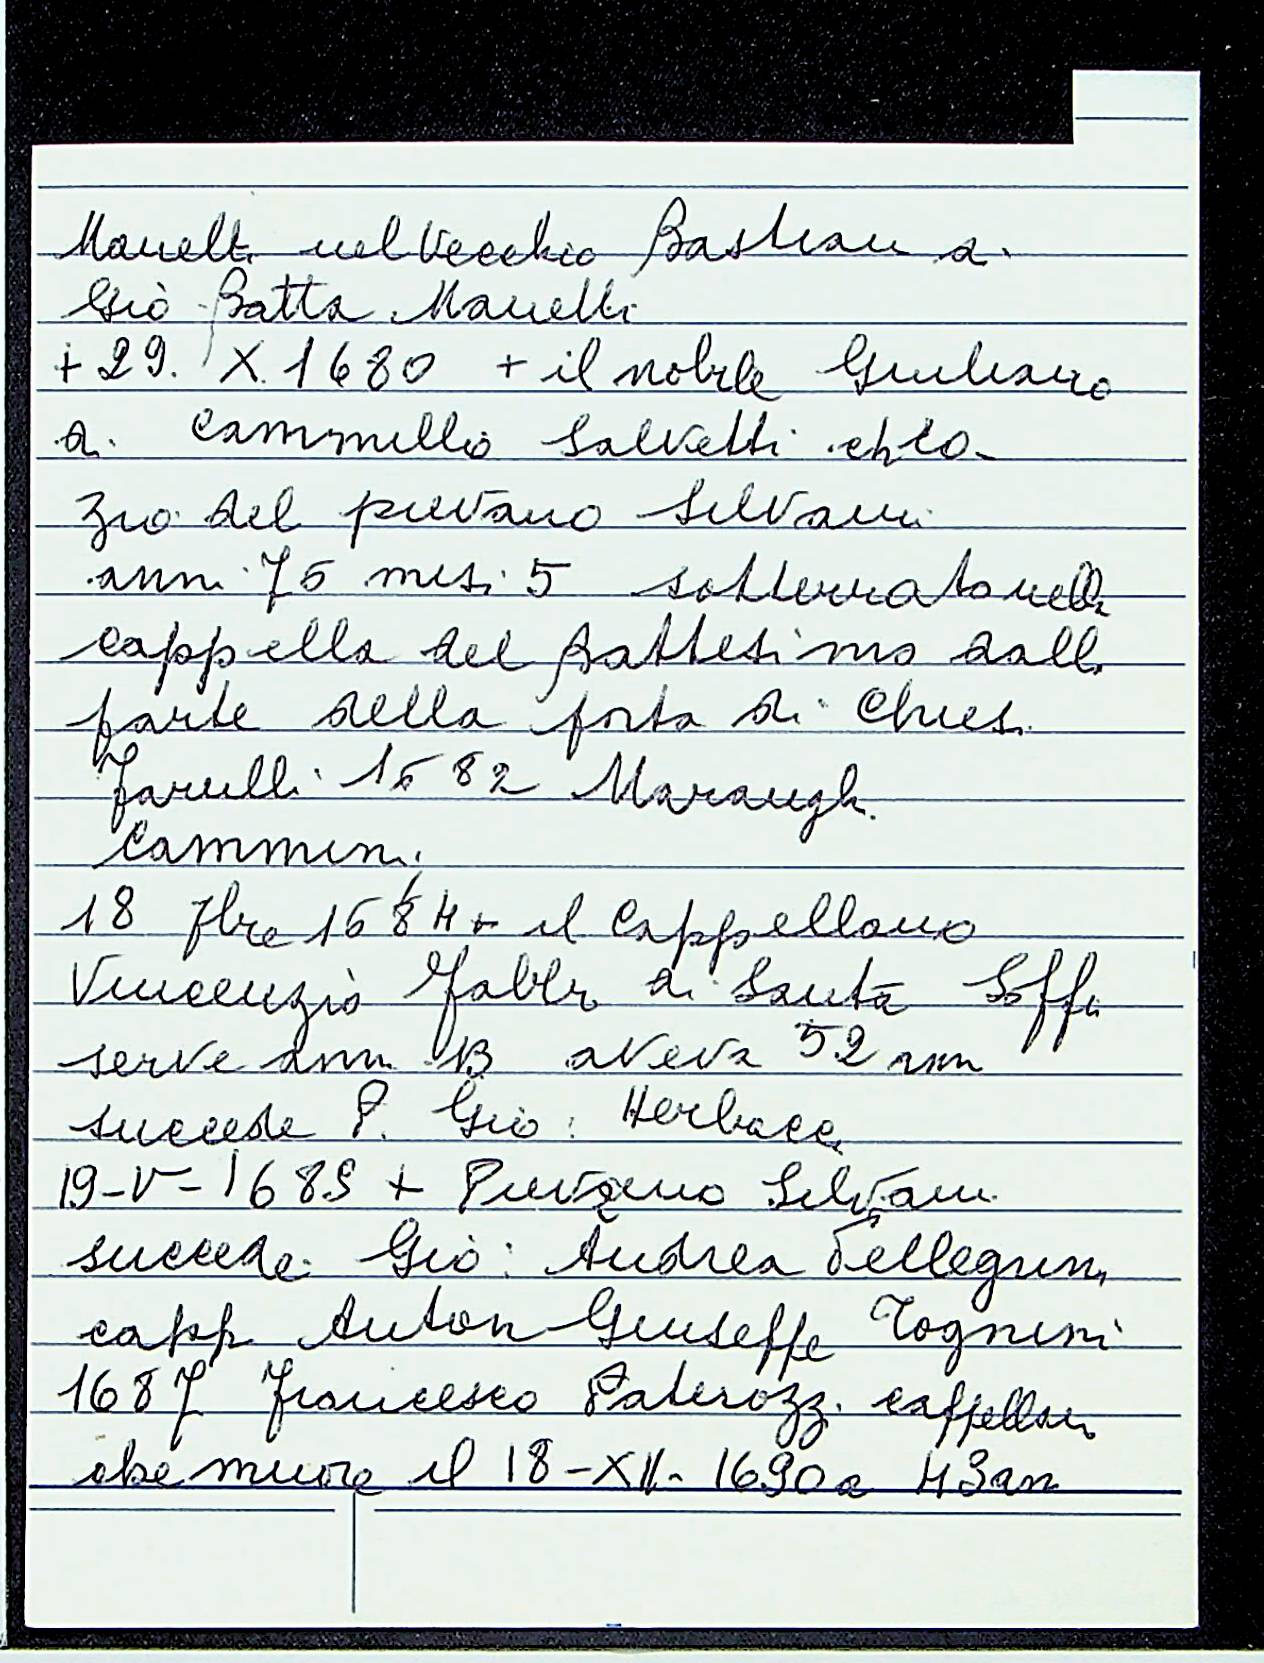 Manelli nel Vecchio Bastian a.
Giò Batta Manelli
+ 29. X. 1680 + il nobile Giuliano
di Cammillo Salvetti
zio del pievano Silvani
anni 75 mesi 5 sotterrato nella
cappella del Battesimo dalla
parte della porta di Chiesa
Farulli 1682 Marangh.
Cammini.
18 7bre 1684 + il Cappellano
Vincenzio Fabbri di Santa Soffia
serve anni 13 aveva 52 anni
succede P. Giò: Herbacci
19-V-1685 + Pievano Silvani
succede Giò: Andrea Pellegrini
capp. Anton Giuseppe Tognini
1687 Francesco Paterozzi cappellano
che muore il 18-XII-1690 a 43 an